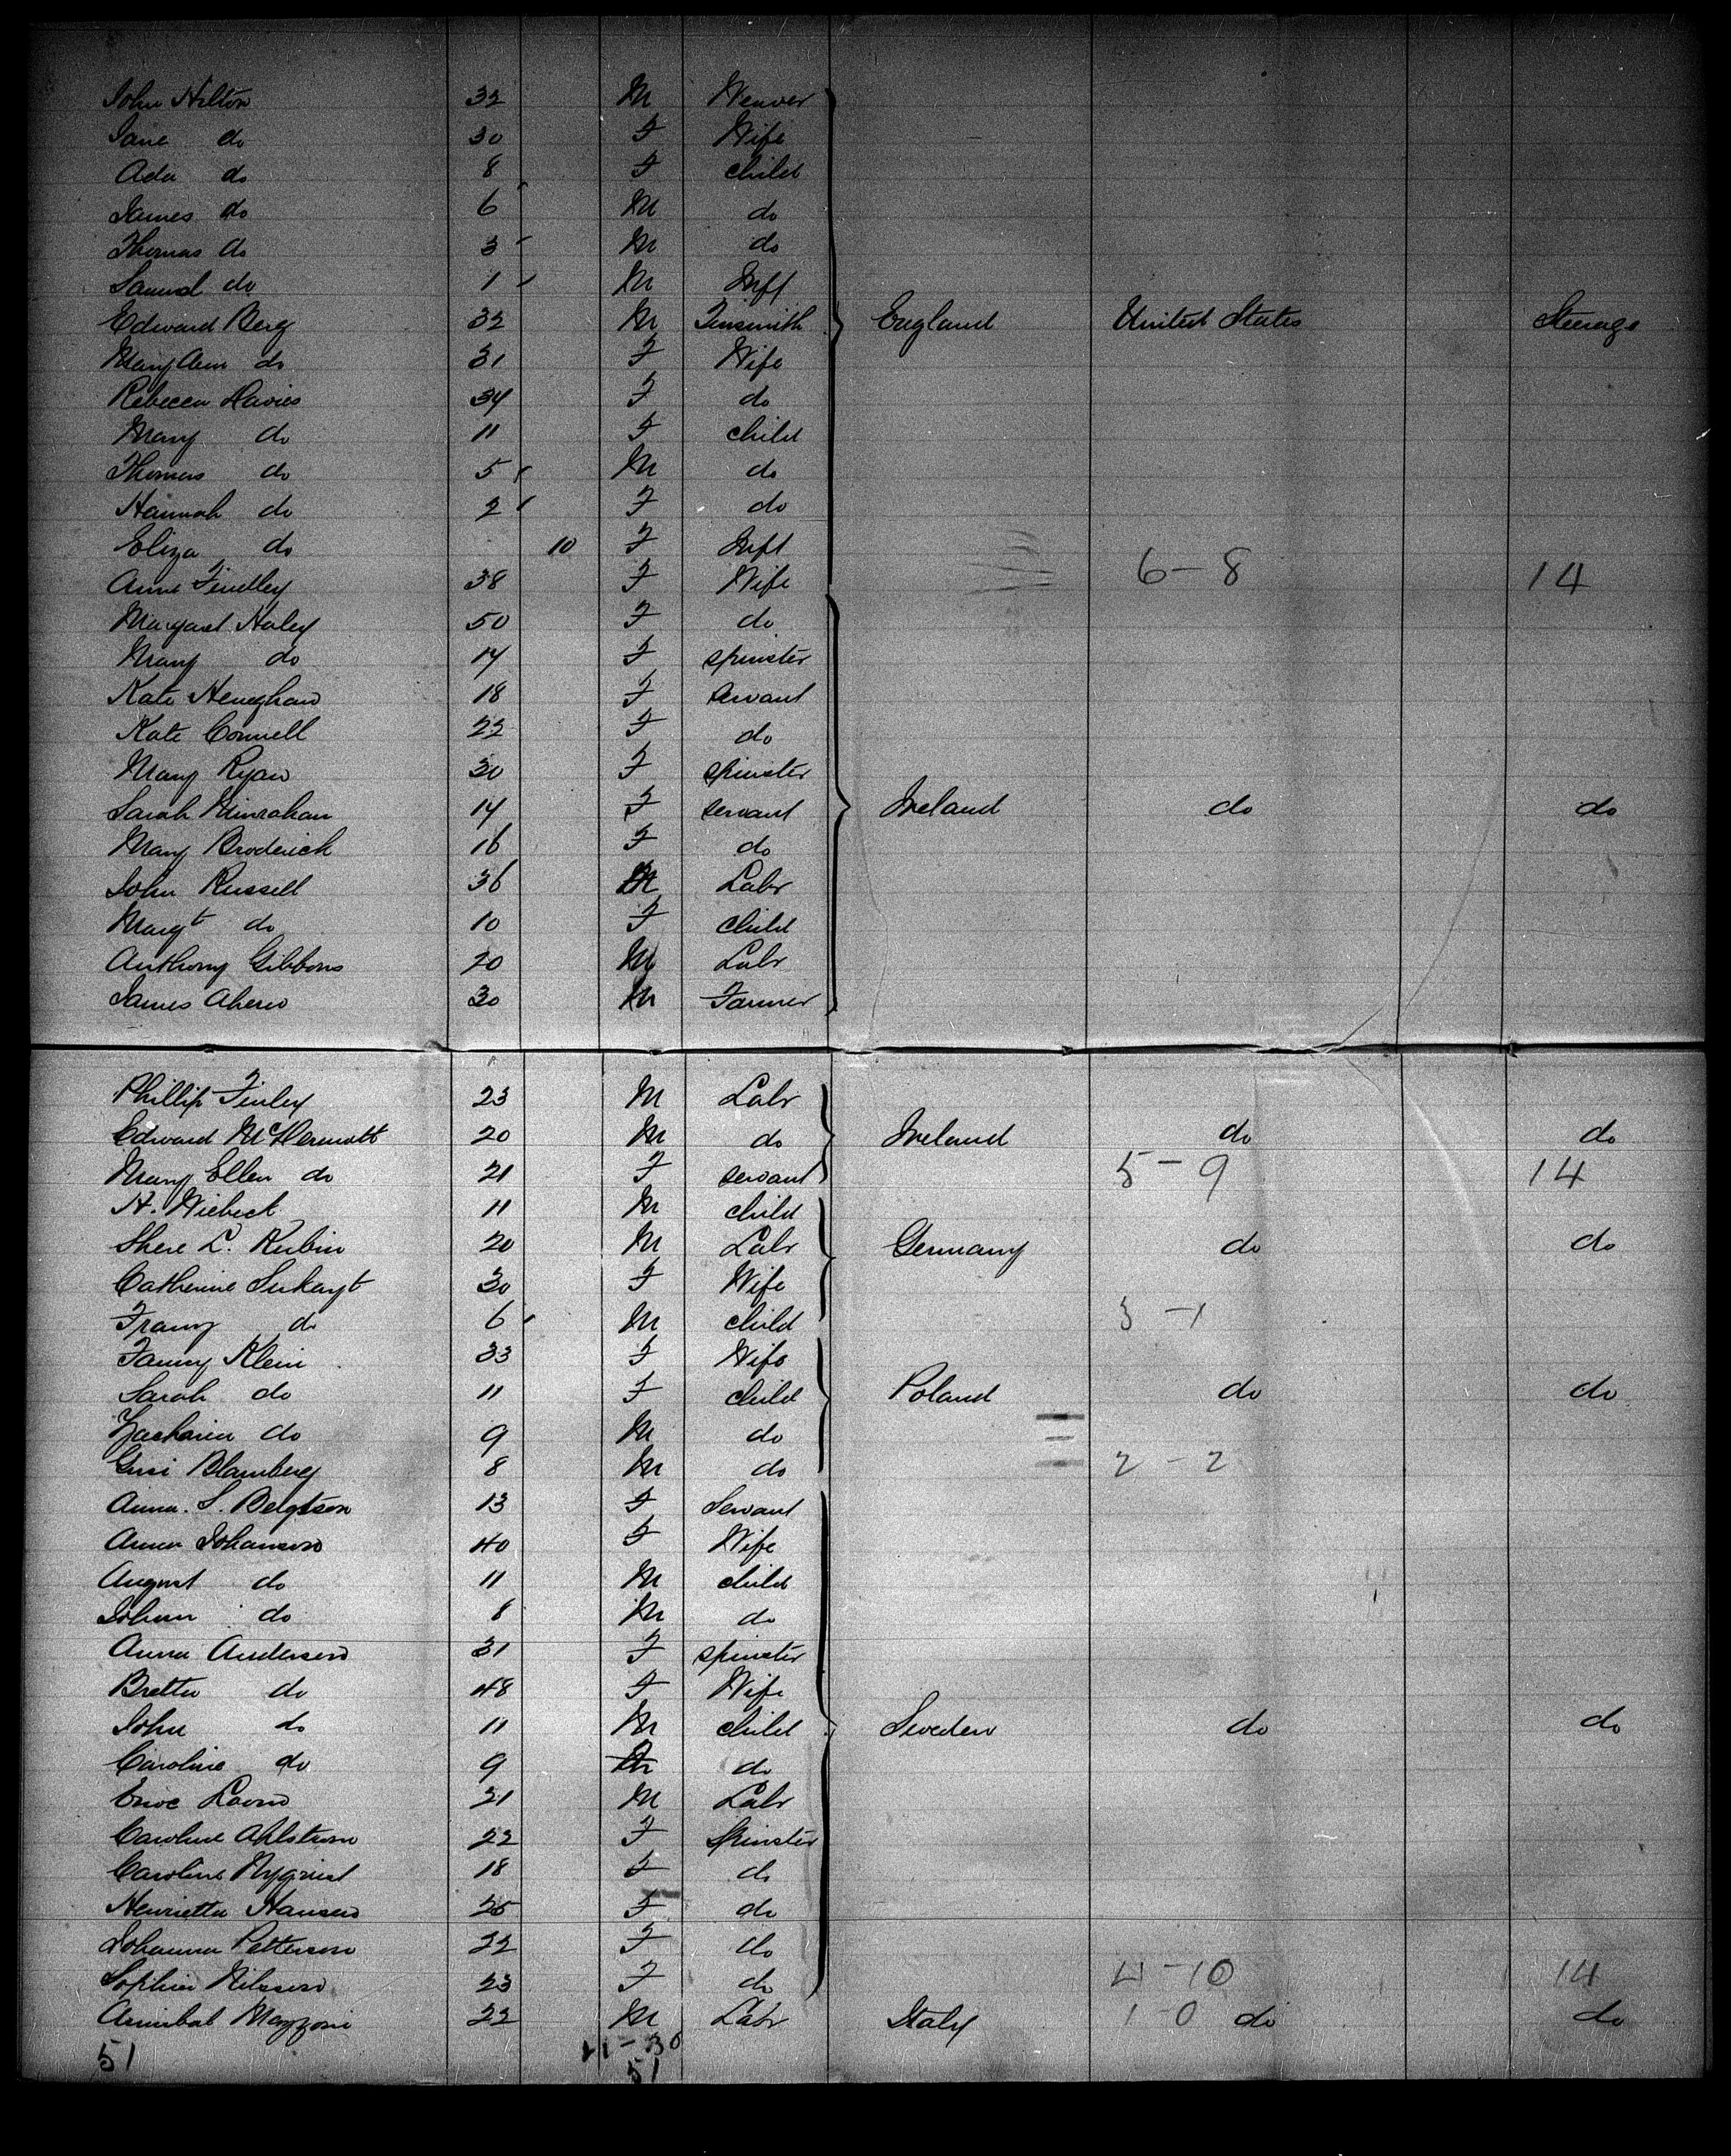 John Hilton 32 M Weaver
Jane do 30 F Wife
Ada do 8 F child
James do 6 M do
Thomas do 3 M do
Samuel do 1 M Inft
Edward Berg 32 M Tinsmith England United States Steerage
Mary Ann do 31 F Wife
Rebecca Davies 34 F do
Mary do 11 F child
Thomas do 5 M do
Hannah do 2 F do
Eliza do 10 F Inft
Anne Findley 38 F Wife 6-8 14
Margaret Haley 50 F do
Mary do 14 F spinster
Kate Heneghan 18 F servant
Kate Connell 22 F do
Mary Ryan 30 F spinster
Sarah Minrahan 14 F servant Ireland do do
Mary Broderick 16 F do
John Russell 36 M Labr
Margt do 10 F child
Anthony Gibbons 20 M Labr
James Ahern 30 M Farmer
Phillip Finley 23 M Labr
Edward McDermott 20 M do Ireland do do
Mary Ellen do 21 F servant 5-9 14
H. Wiebeck 11 M child
Shere L. Rubin 20 M Labr Germany do do
Catherine 30 F Wife
Franz do 6 M child 3-1
Fanny Klein 33 F Wife
Sarah do 11 F child Poland do do
Zacharia do 9 M do
Gusi Blamberg 8 M do 2-2
Anna. S. Belgtson 13 F Servant
Anna Johanson 40 F Wife
August do 11 M child
Johan do 8 M do
Anna Anderson 31 F spinster
Bretta do 48 F Wife
John do 11 M child Sweden do do
Caroline do 9 do
21 M Labr
Caroline Ahlstrom 22 F Spinster
Caroline Nyquist 18 F do
Henrietta Hansen 25 F do
Johanna Petterson 22 F do
Sophia Nilsson 23 F do 4-10 14
Annibal Mazzoni 22 M Labr Italy 1-0 do do
51 21-30
51